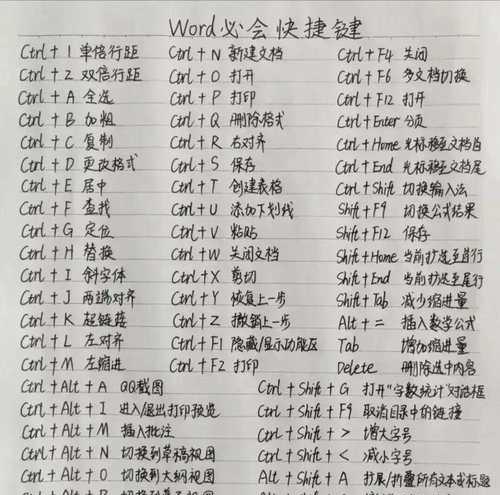 Word必会快捷键
Ctrl + 1 单倍行距 Ctrl + N 新建文档 Ctrl + F4 关闭
Ctrl + 2 双倍行距 Ctrl + O 打开 Ctrl + F6 多文档切换
Ctrl + A 全选 Ctrl + P 打印 Ctrl + F12 打开
Ctrl + B 加粗 Ctrl + Q 删除格式 Ctrl + Enter 分页
Ctrl + C 复制 Ctrl + R 右对齐 Ctrl + Home 光标移至文档首
Ctrl + D 更改格式 Ctrl + S 保存 Ctrl + End 光标移至文档尾
Ctrl + E 居中 Ctrl + T 创建表格 Ctrl + Shift 切换输入法
Ctrl + F 查找 Ctrl + U 添加下划线 Shift + F9 切换公式结果
Ctrl + G 定位 Ctrl + V 粘贴 Shift + F12 保存
Ctrl + H 替换 Ctrl + W 关闭文档 Shift + Home 当前扩选至首行
Ctrl + I 斜字体 Ctrl + X 剪切 Shift + End 当前扩选至尾行
Ctrl + J 两端对齐 Ctrl + Y 恢复上一步 Shift + Tab 减少缩进量
Ctrl + K 超链接 Ctrl + Z 撤销上一步 Alt + = 插入数学公式
Ctrl + L 左对齐 Ctrl + F1 隐藏/显示功能区 Tab 增加缩进量
Ctrl + M 左缩进 Ctrl + F2 打印 Delete 删除选中内容
Ctrl + Alt + A QQ截图 Ctrl + Shift + G 打开"字数统计"对话框
Ctrl + Alt + I 进入/退出打印预览 Ctrl + Shift + F9 取消目录中的链接
Ctrl + Alt + M 插入批注 Ctrl + Shift + > 增大字号
Ctrl + Alt + N 切换到草稿视图 Ctrl + Shift + < 减小字号
Ctrl + Alt + O 切换到大纲视图 Alt + Shift + A 扩展/折叠所有文本或标题